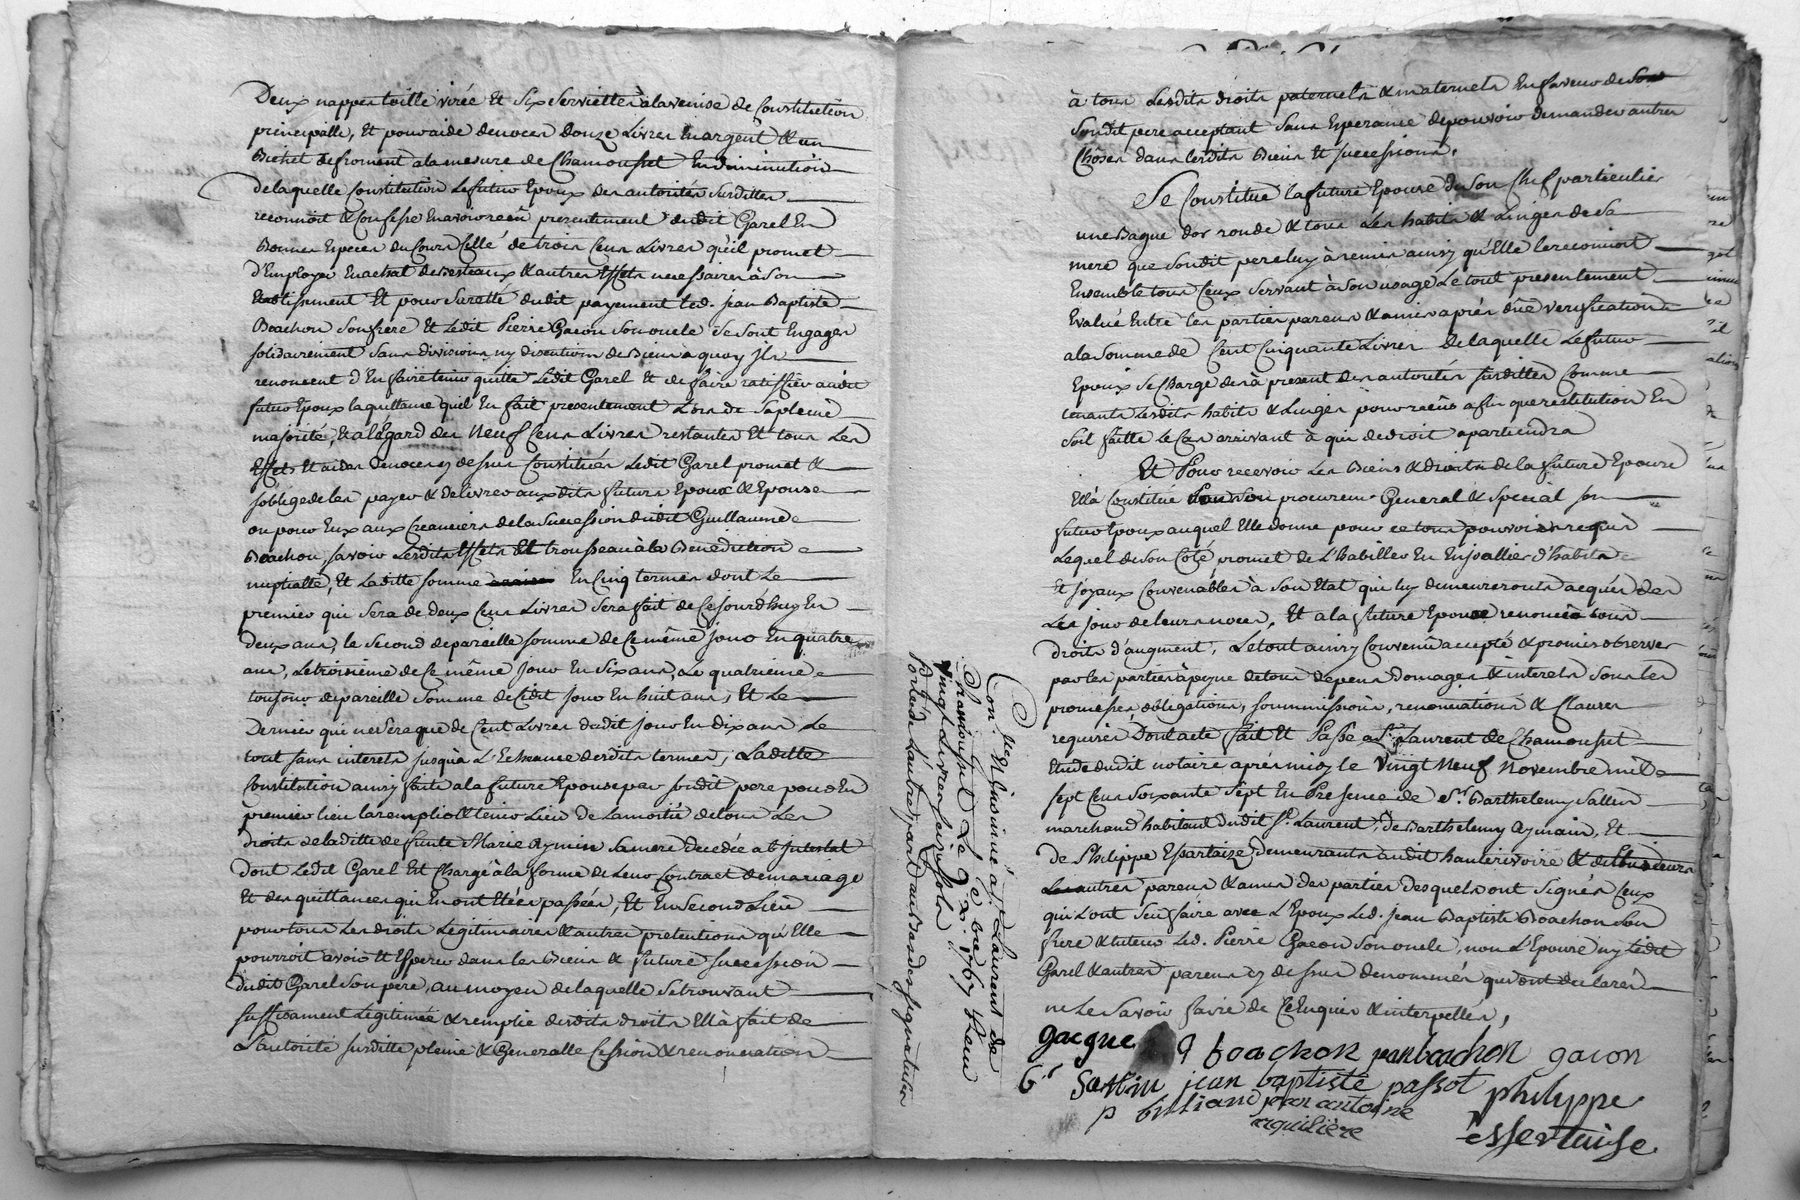 Deux nappes toille virée et six serviettes à la venise de Constitution
principalle, et pour aide de noces douze Livres en argent & un
Bichet de froment a la mesure de Chamousset En diminution
de laquelle Constitution le futur Epoux des autorités susdittes
reconnoit & confesse En avoir reçû presentement dudit Garel En
Bonnes Especes du Cours Celle de trois Cens Livres qu'il promet
d'Employer En achat de Bestiaux & autres Effets necessaires à Son
Etablissement Et pour Suretté dudit payement led. jean Baptiste
Boachon Son frere Et Ledit Pierre Gacon Son oncle Se Sont Engagés
solidairement Sans division ny discution de Biens à quoy jls
renoncent d'En faire tenir quitte Ledit Garel Et de faire ratiffier audit
futur Epoux la quittance qu'il En fait presentement Lors de Sa pleine
majorité, Et a l'Egard des Neuf Cens Livres restantes Et tous Les
Effets Et aides de noces cy dessus Constitués Ledit Garel promet &
s'oblige de les payer & delivrer auxdits futurs Epoux & Epouse
ou pour Eux aux Creanciers de la Succession dudit Guillaume
Boachon, savoir Lesdits Effets Et trousseau à la Benediction
nuptialle, Et Laditte somme En Cinq termes dont Le
premier qui Sera de deux Cens Livres Sera fait de Cejourd'huy En
deux ans, le Second de pareille somme de Ce même jour En quatre
ans, Le troisieme de Ce même jour En Six ans, Le quatrieme
toujour de pareille Somme dudit jour En huit ans, Et Le
Dernier qui ne Sera que de Cent Livres dudit jour En dix ans Le
tout sans interets jusqu'à L'Echeance desdits termes, Laditte
Constitution ainsy faite a la future Epouse par sondit pere pour En
premier lieu la remplir & tenir Lieu de La moitié de tous Les
droits de laditte deffunte Marie Aymin Sa mere decedée ab intestat
Dont Ledit Garel Est Chargé à la forme de Leur Contract de mariage
Et des quittances qui En ont Etées passées, Et En Second Lieu
pour tous Les droits Legitimaires & autres pretentions qu'Elle
pourroit avoir Et Esperer dans les Biens & future succession
dudit Garel Son pere, au moyen de laquelle Se trouvant
suffisament Legitimée & remplie desdits droits Ella fait de
L'autorité susditte pleine & Generalle Cession & renonciation
à tous Lesdits droits paternels & maternels En faveur de
Sondit pere acceptant Sans Esperance de pouvoir Demander autres
Choses dans lesdits Biens Et successions.
Se Constitue la future Epouse de Son Chef particulier
une Bague d'or ronde & tous Les habits & Linges de Sa
mere que Sondit pere luy à remis ainsy qu'Elle le reconnoit
Ensemble tous Ceux Servant à Son usage Le tout presentement
Evalué Entre les parties parens & amis après düe verification
a la Somme de Cent Cinquante Livres de laquelle Le futur
Epoux Se Charge dès à present des autorités susdittes Comme
tenant Lesdits habits & Linges pour reçûs afin que restitution En
Soit faitte le Cas arrivant à qui de droit apartiendra
Et Pour recevoir Les Biens & droits de la future Epouse
Ella Constitué Son procureur General & Special son
futur Epoux auquel Elle donne pour ce tous pouvoirs requis
Lequel de Son Coté promet de L'habiller En Enjoallier d'habits
Et joyaux Convenables à Son Etat qui luy demeureront acquis dès
Les jour de leurs noces, Et a la future Epouse renoncé à tous
droits d'augment, Le tout ainsy Convenû accepté & promis observer
par les parties à peyne de tous depens domages & interets Sous les
promesses obligations, soummissions, renonciations & Clauses
requises Dont acte fait Et Passé a St. Laurent de Chamousset
Etude dudit notaire après midy le Vingt Neuf Novembre mil
sept Cens Soixante Sept En Presence de Sr. Barthelemy Salles
marchand habitant dudit St. Laurent, de Barthelemy Aymain, Et
de Philippe Essartaize, demeurants audit hauterivoire & de Plusieurs
autres parens & amis des parties desquels ont Signés Ceux
qui L'ont Sçu faire avec L'Epoux Led. Jean Baptiste Boachon Son
frere & tuteur Led. Pierre Gacon Son oncle, non L'Epouse ny ledit
Garel & autres parens cy dessus denommés qui ont declarés
ne Le Savoir faire de Ce Enquis & interpellés,
gacque boachon jean boachon gacon
jean baptiste passot philippe
p billiand jean antoine
essertaise
aquiliere
Con. Et insinué a St. Laurent de
Chamousset Le 9 Xbre 1767 Reçu
Vingt Livres
d'autre part au Bas des signatures